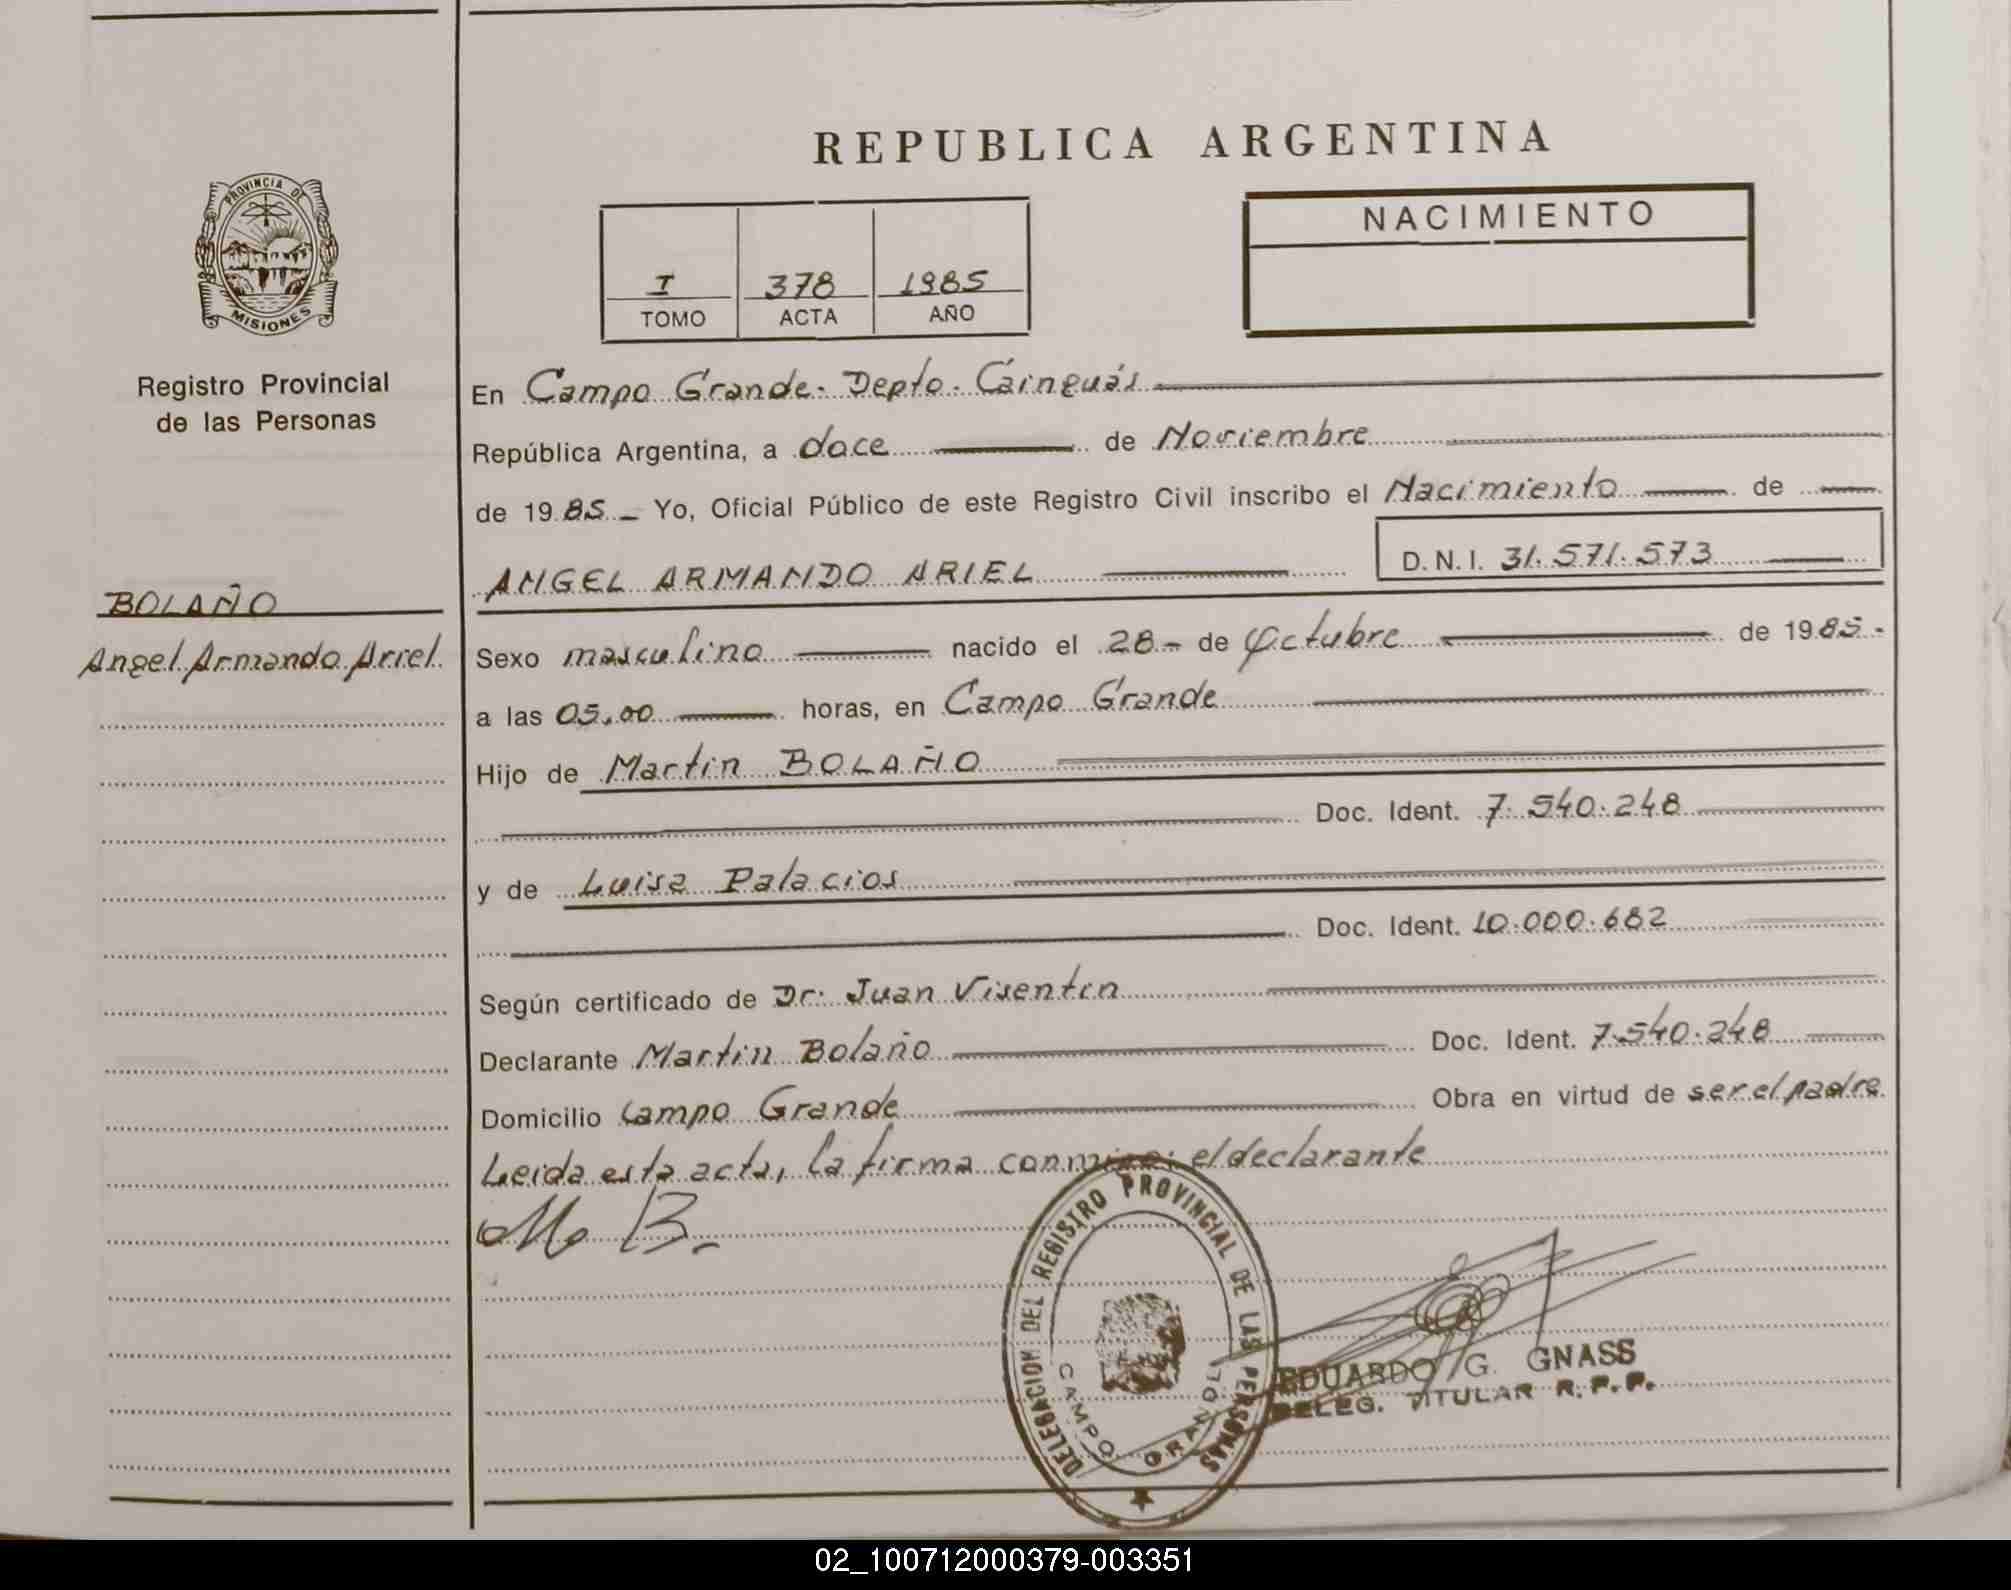 REPUBLICA ARGENTINA
PROVINCIA DE
MISIONES
Registro Provincial
de las Personas
BOLAÑO
Angel Armando Ariel
I 378 1985
TOMO ACTA AÑO
NACIMIENTO
En Campo Grande - Depto - Cainguás
República Argentina, a doce de Noviembre
de 1985 - Yo, Oficial Público de este Registro Civil inscribo el Nacimiento de
ANGEL ARMANDO ARIEL D.N.I. 31.571.573
Sexo masculino nacido el 28 - de Octubre de 1985 -
a las 05,00 horas, en Campo Grande
Hijo de Martin BOLAÑO
Doc. Ident. 7.540.248
y de Luisa Palacios
Doc. Ident. 10.000.682
Según certificado de Dr. Juan Visentin
Declarante Martin Bolaño Doc. Ident. 7.540.248
Domicilio Campo Grande Obra en virtud de ser el padre
Leida esta acta, la firma conmigo: el declarante
M B.
DELEGACION DEL REGISTRO PROVINCIAL DE LAS PERSONAS
CAMPO GRANDE
EDUARDO G. GNASS
DELEG. TITULAR R.P.P.
02_100712000379-003351